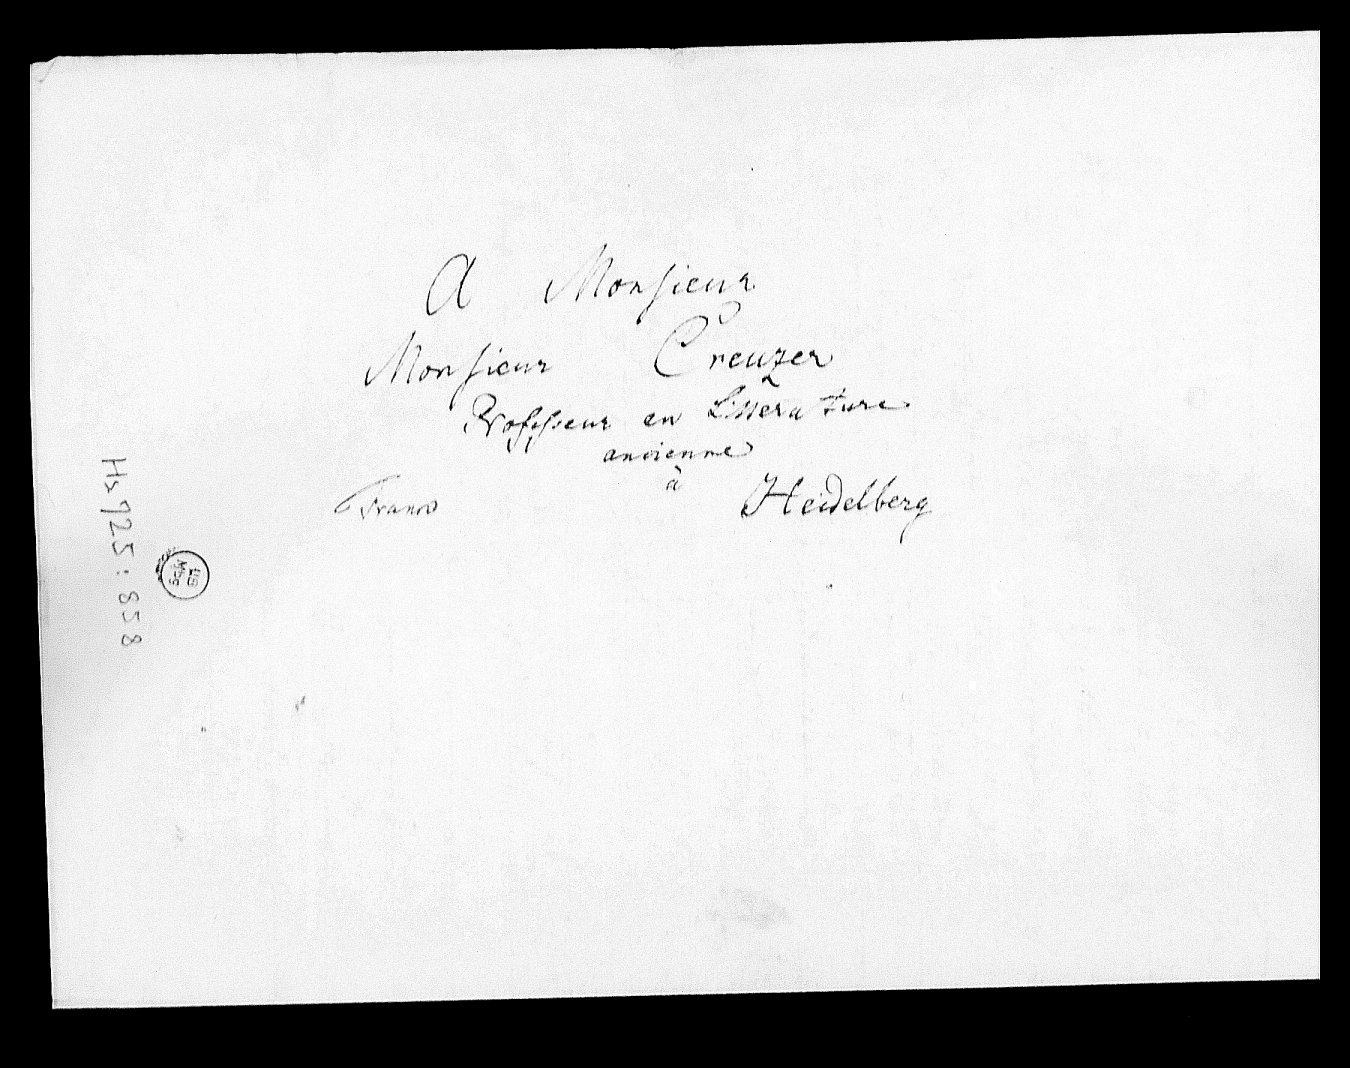 A Monsieur
Monsieur Creuzer
Professeur en Litterature
ancienne
à Heidelberg
Franco
Hs 925: 858
UB
Mbg